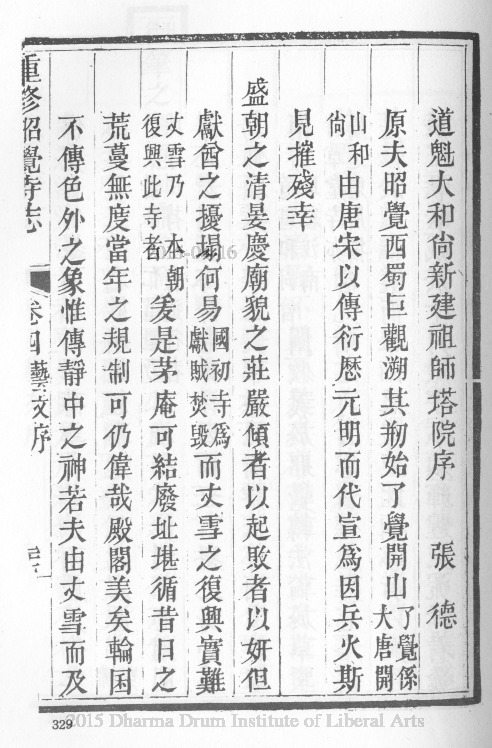 道魁大和尚新建祖師塔院序　張德
原夫昭覺西蜀巨觀溯其剏始了覺開山了覺係大唐開
山和尚由唐宋以傳衍歷元明而代宣為因兵火斯
見摧殘幸
盛朝之清晏慶廟貌之莊嚴傾者以起敗者以妍但
獻酋之擾攘何易國初寺爲獻賊焚毀而丈雪之復興實難
丈雪乃本朝復興此寺者爰是茅庵可結廢址堪循昔日之
荒蔓無度當年之規制可仍偉哉殿閣美矣輪囷
不傳色外之象惟傳靜中之神若夫由丈雪而及
重修昭覺寺志　卷四藝文序
329
2015 Dharma Drum Institute of Liberal Arts